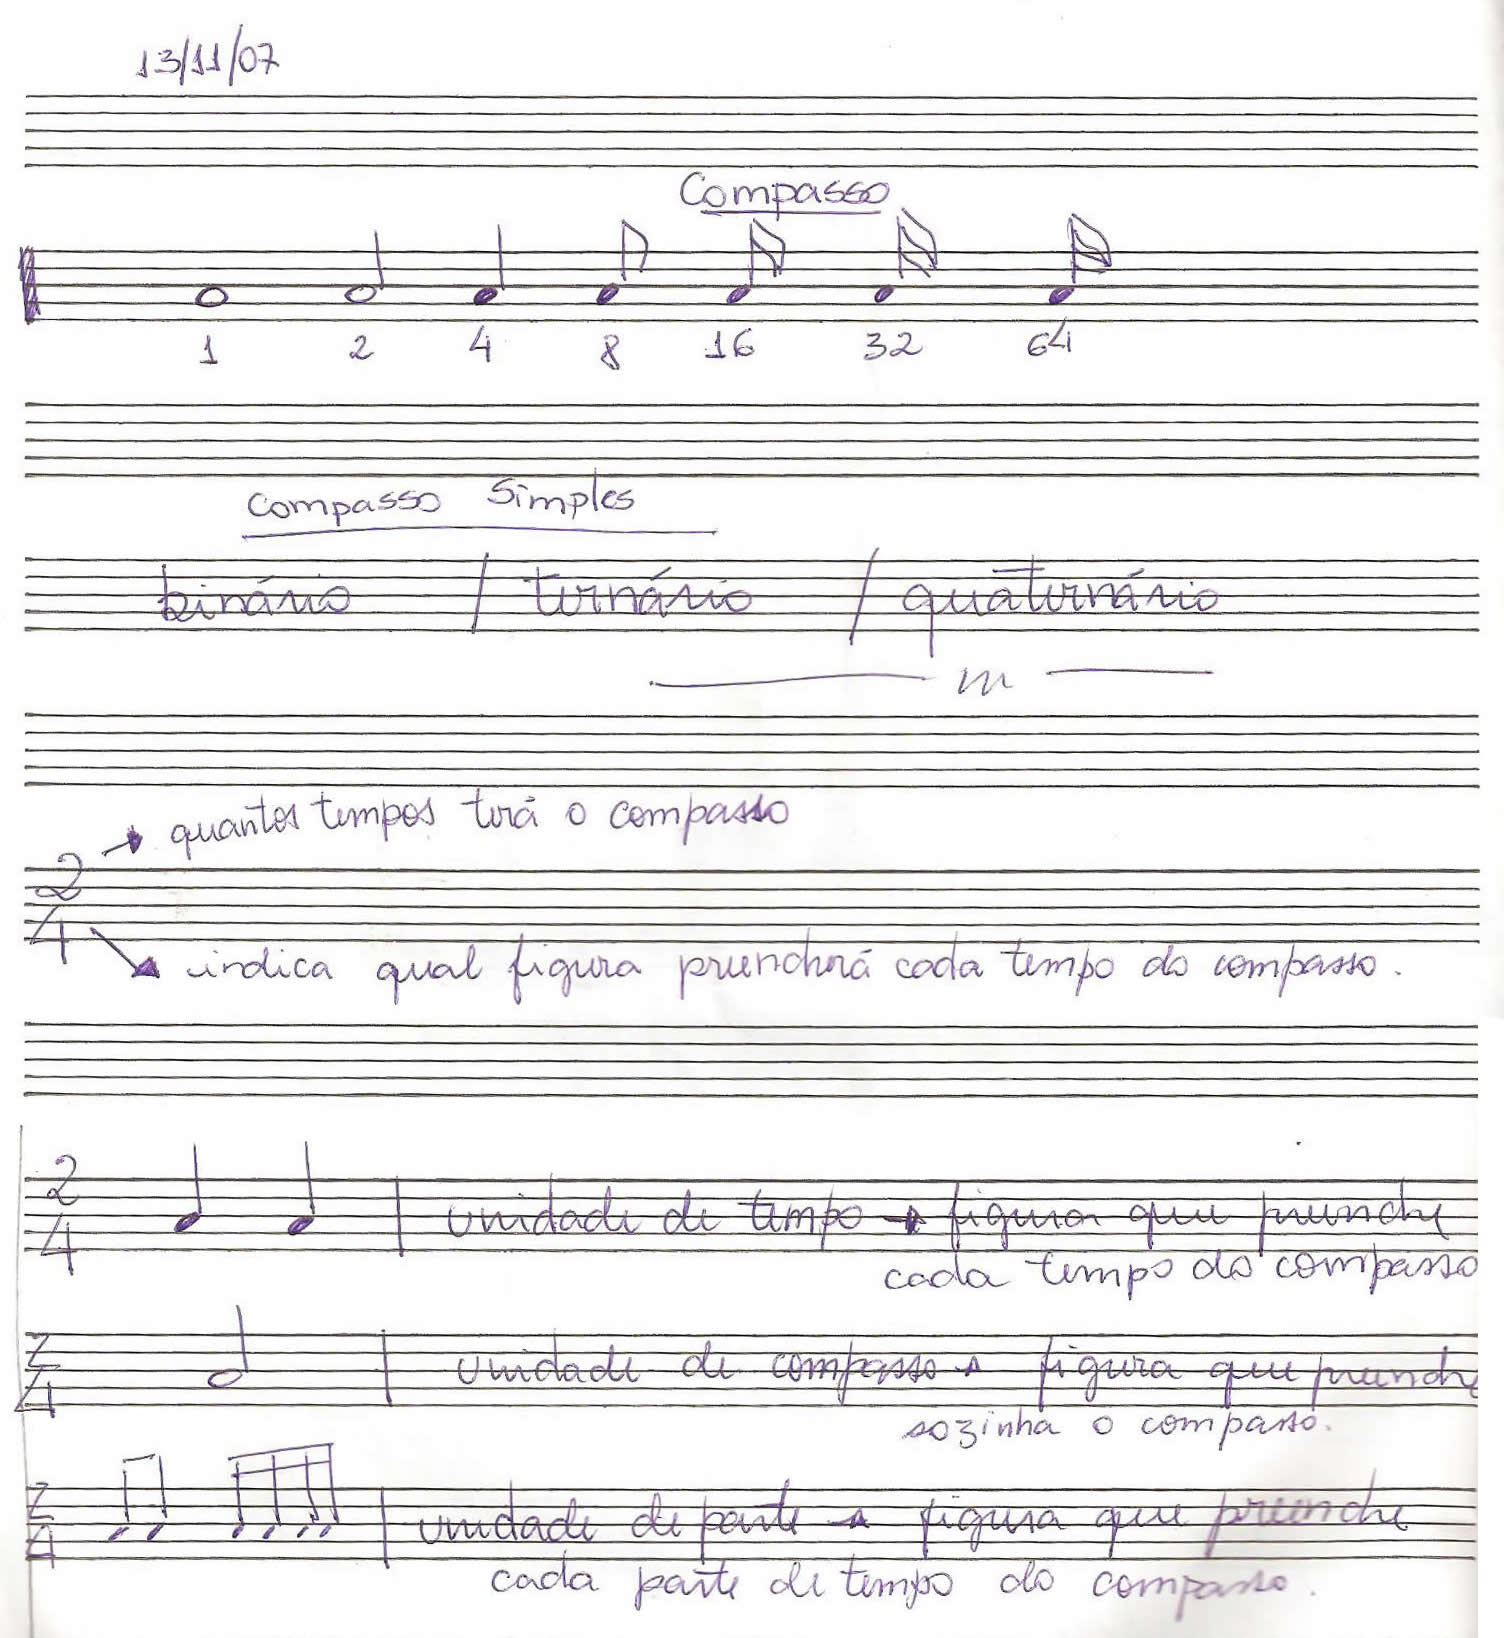 13/11/07
Compasso
1 2 4 8 16 32 64
Compasso Simples
binário / ternário / quaternário
quantos tempos terá o compasso
2
4
indica qual figura preencherá cada tempo do compasso.
2
4
unidade de tempo → figura que preenche
cada tempo do compasso
2
4
unidade de compasso → figura que preenche
sozinha o compasso.
2
4
unidade de parte → figura que preenche
cada parte de tempo do compasso.